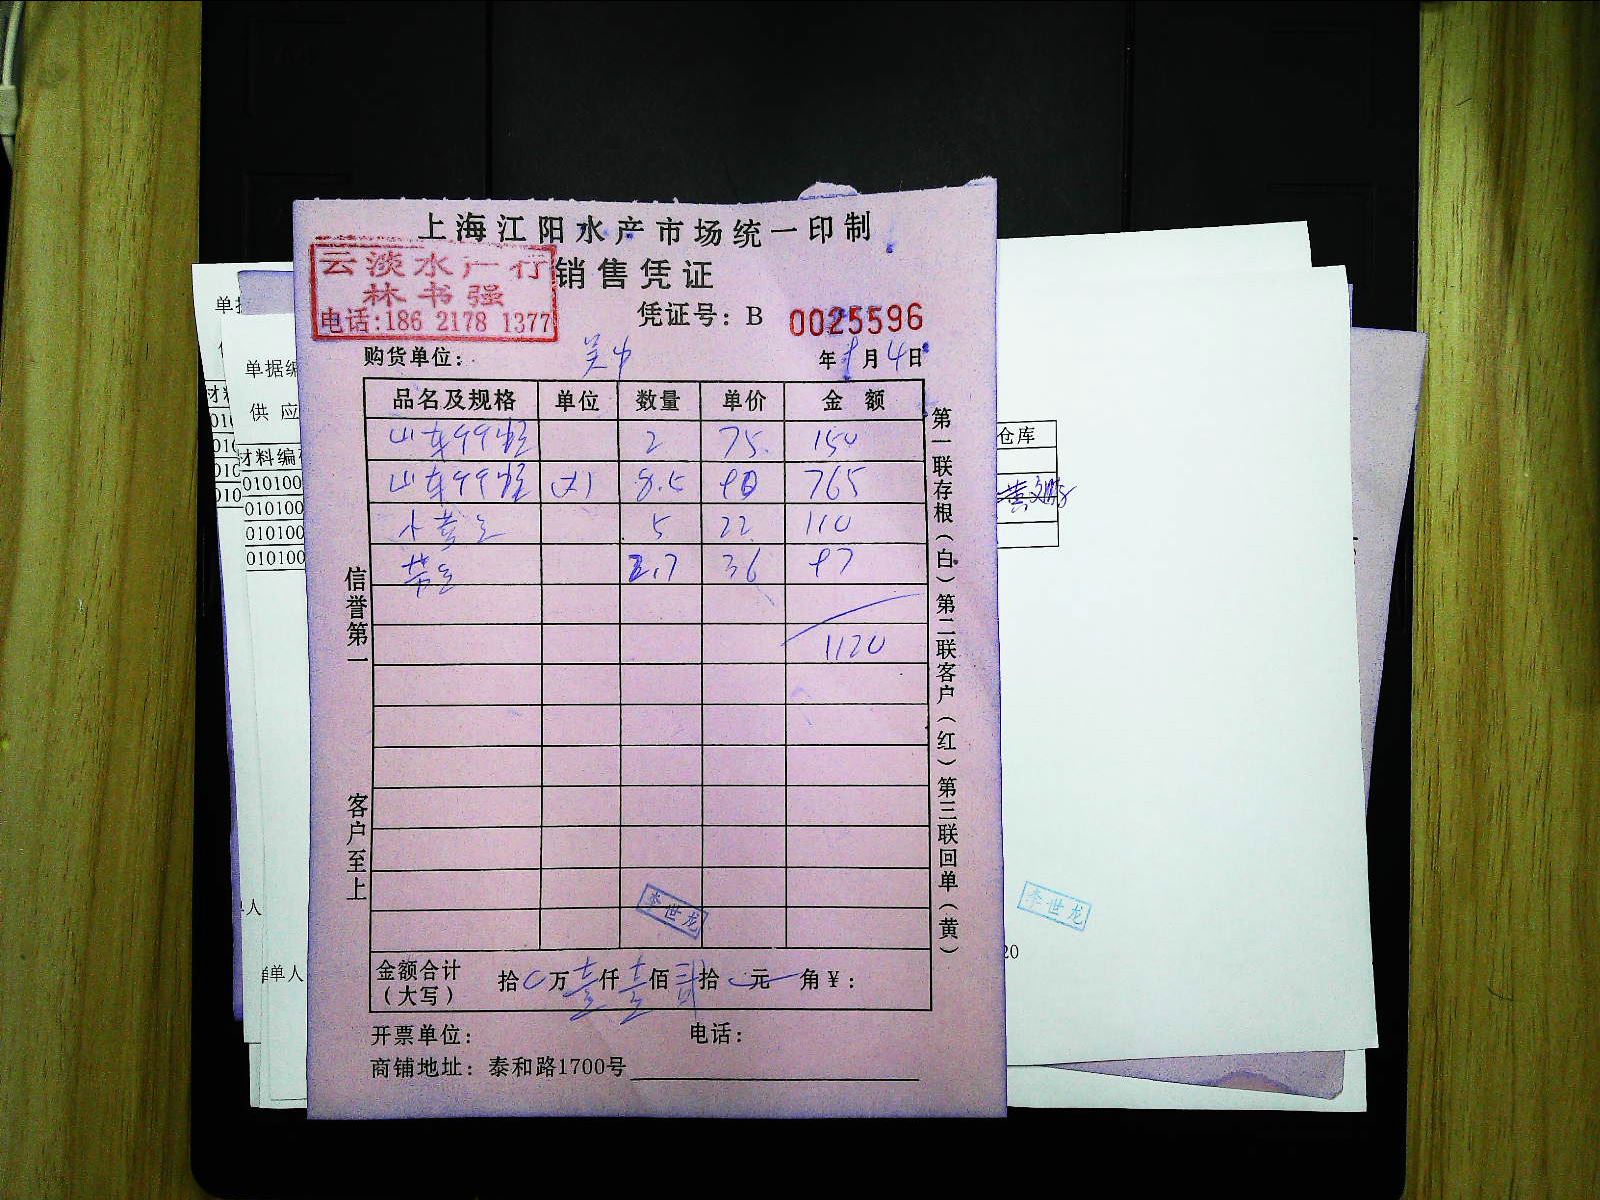 上海江阳水产市场统一印制
云淡水产行
林书强
电话:186 2178 1377
销售凭证
凭证号: B 0025596
购货单位: 吴中
年 9月4日
品名及规格 单位 数量 单价 金额
山东 2 75. 150
山东 (大) 8.5 90 765
小黄鱼 5 22 110
带鱼 2.7 36 97
1120
信誉第一
客户至上
第一联存根(白)第二联客户(红)第三联回单(黄)
李世龙
金额合计(大写) 拾0万壹仟壹佰贰拾 元 角¥:
开票单位: 电话:
商铺地址: 泰和路1700号
单据编
供应
材料编
010100
010100
010100
010100
单人
仓库
李世龙
20